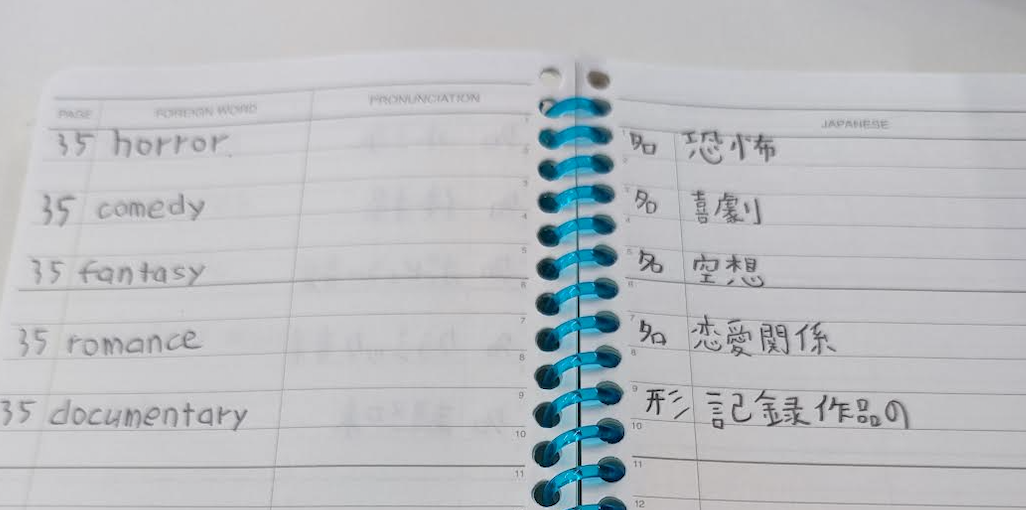 PAGE FOREIGN WORD PRONUNCIATION JAPANESE
35 horror 名 恐怖
35 comedy 名 喜劇
35 fantasy 名 空想
35 romance 名 恋愛関係
35 documentary 形 記録作品の